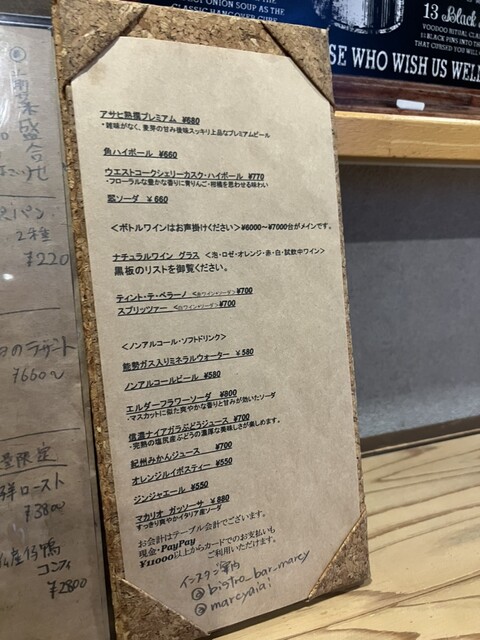 ULT ONION SOUP AS THE
CLASSIC HANGOVER CURE
13 Black
VOODOO RITUAL
BLACK PINS INTO THE
THAT CURSED YOU WILL
SE WHO WISH US WEL
アサヒ熟撰プレミアム ¥680
・雑味がなく、麦芽の甘み後味スッキリ上品なプレミアムビール
角ハイボール ¥660
ウエストコークシェリーカスク・ハイボール ¥770
・フローラルな豊かな香りに青りんご・柑橘を思わせる味わい
翠ソーダ ¥660
<ボトルワインはお声掛けください>¥6000～¥7000台がメインです。
ナチュラルワイン グラス <泡・ロゼ・オレンジ・赤・白・試飲中ワイン>
黒板のリストを御覧ください。
ティント・デ・ベラーノ <赤ワイン+ソーダ>¥700
スプリッツァー <白ワイン+ソーダ>¥700
<ノンアルコール・ソフトドリンク>
能勢ガス入りミネラルウォーター ¥580
ノンアルコールビール ¥580
エルダーフラワーソーダ ¥800
・マスカットに似た爽やかな香りと甘みが効いたソーダ
信濃ナイアガラぶどうジュース ¥700
・完熟の塩尻産ぶどうの濃厚な美味しさが楽しめます。
紀州みかんジュース ¥700
オレンジルイボスティー ¥550
ジンジャエール ¥550
マカリオ ガッソーサ ¥880
すっきり爽やかイタリア産ソーダ
お会計はテーブル会計でございます。
現金・PayPay
¥11000以上からカードでのお支払いも
ご利用いただけます。
インスタご案内
@bistro_bar_marcy
@marcyaiai
盛合
パン
2種
¥220
のデザート
¥660～
量限定
ロースト
¥3800
産仔鴨
コンフィ
¥2800